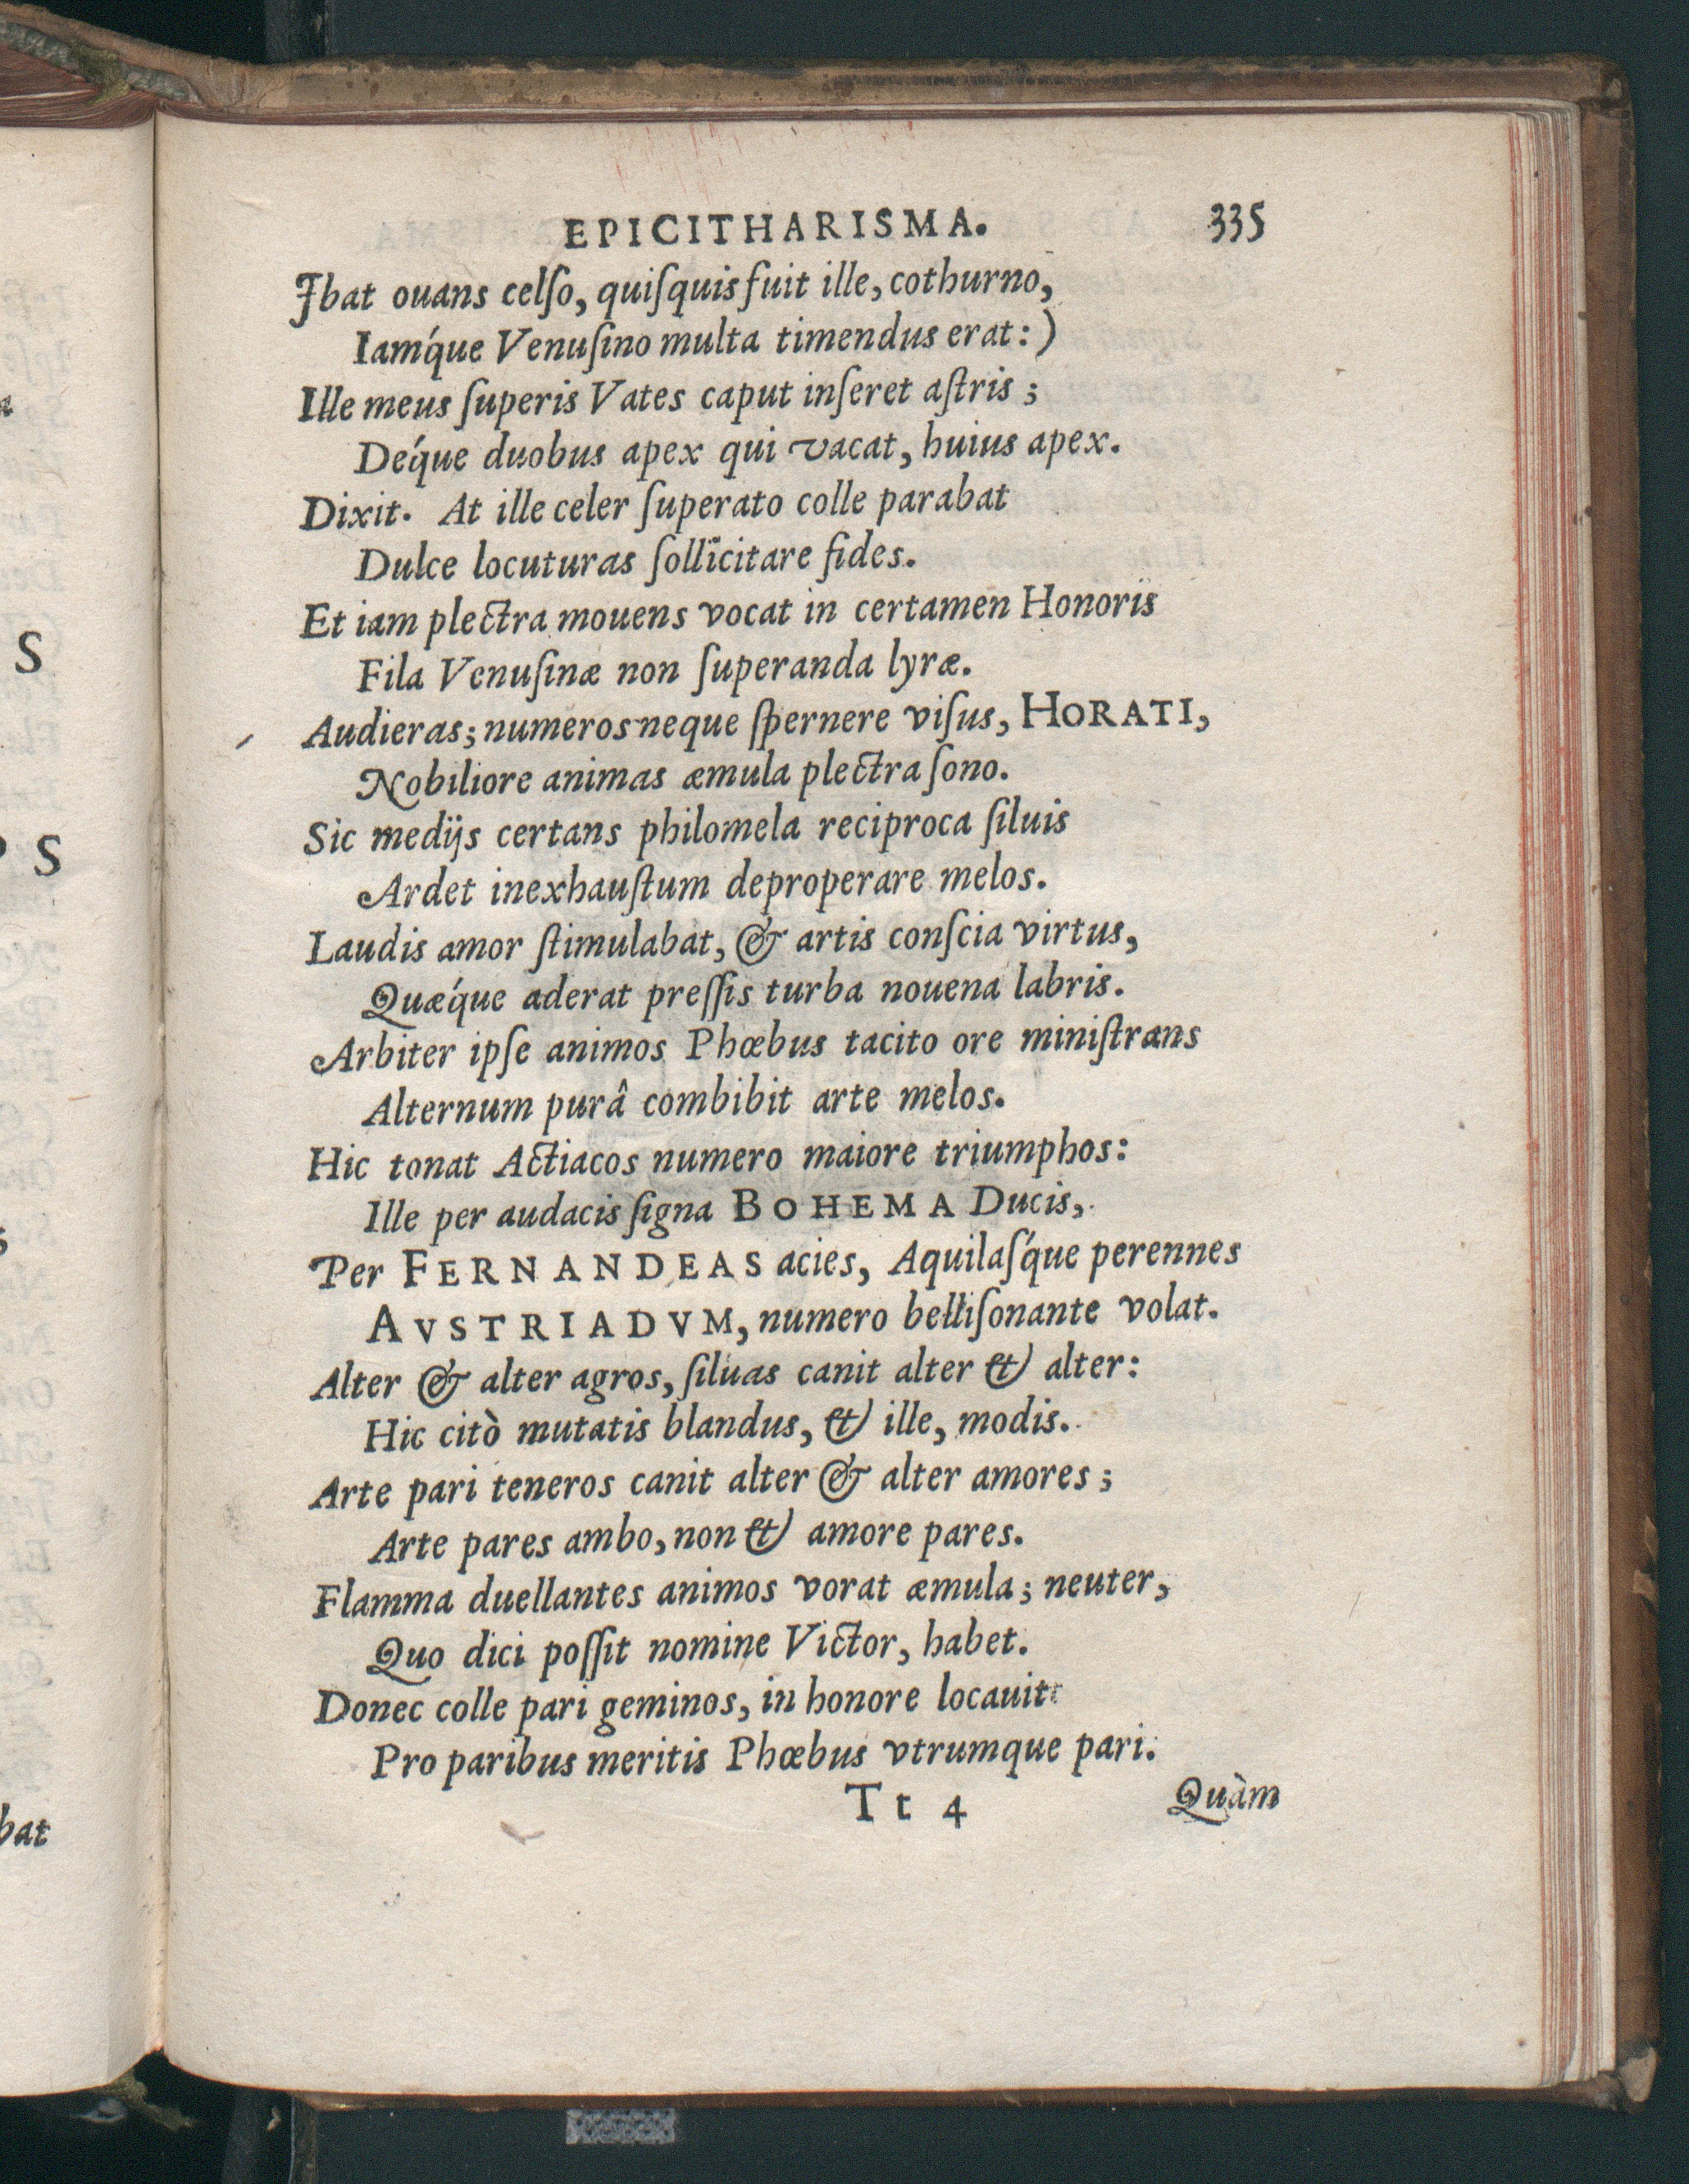 EPICITHARISMA. 335
Ibat ouans celſo, quiſquis fuit ille, cothurno,
Iamq́ue Venuſino multa timendus erat:)
Ille meus ſuperis Vates caput inſeret aſtris;
Deq́ue duobus apex qui vacat, huius apex.
Dixit. At ille celer ſuperato colle parabat
Dulce locuturas ſollicitare fides.
Et iam plectra mouens vocat in certamen Honoris
Fila Venuſinæ non ſuperanda lyræ.
Audieras; numeros neque ſpernere viſus, HORATI,
Nobiliore animas æmula plectra ſono.
Sic medijs certans philomela reciproca ſiluis
Ardet inexhauſtum deproperare melos.
Laudis amor ſtimulabat, & artis conſcia virtus,
Quæq́ue aderat preſſis turba nouena labris.
Arbiter ipſe animos Phœbus tacito ore miniſtrans
Alternum purâ combibit arte melos.
Hic tonat Actiacos numero maiore triumphos:
Ille per audacis ſigna BOHEMA Ducis,
Per FERNANDEAS acies, Aquilaſq́ue perennes
AVSTRIADVM, numero belliſonante volat.
Alter & alter agros, ſiluas canit alter & alter:
Hic citò mutatis blandus, & ille, modis.
Arte pari teneros canit alter & alter amores;
Arte pares ambo, non & amore pares.
Flamma duellantes animos vorat æmula; neuter,
Quo dici poſſit nomine Victor, habet.
Donec colle pari geminos, in honore locauit
Pro paribus meritis Phœbus vtrumque pari.
Tt 4 Quàm
S
S
bat